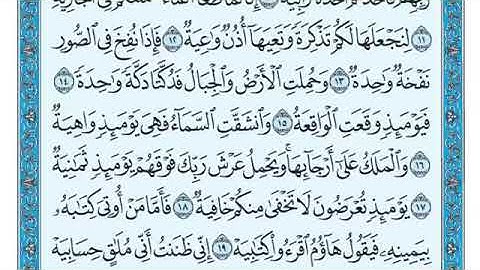 رَبِّهِمْ فَأَخَذَهُمْ أَخْذَةً رَّابِيَةً ١٠ إِنَّا لَمَّا طَغَا ٱلْمَآءُ حَمَلْنَٰكُمْ فِى ٱلْجَارِيَةِ
١١ لِنَجْعَلَهَا لَكُمْ تَذْكِرَةً وَتَعِيَهَآ أُذُنٌ وَٰعِيَةٌ ١٢ فَإِذَا نُفِخَ فِى ٱلصُّورِ
نَفْخَةٌ وَٰحِدَةٌ ١٣ وَحُمِلَتِ ٱلْأَرْضُ وَٱلْجِبَالُ فَدُكَّتَا دَكَّةً وَٰحِدَةً ١٤
فَيَوْمَئِذٍ وَقَعَتِ ٱلْوَاقِعَةُ ١٥ وَٱنشَقَّتِ ٱلسَّمَآءُ فَهِىَ يَوْمَئِذٍ وَاهِيَةٌ
١٦ وَٱلْمَلَكُ عَلَىٰٓ أَرْجَآئِهَا ۚ وَيَحْمِلُ عَرْشَ رَبِّكَ فَوْقَهُمْ يَوْمَئِذٍ ثَمَٰنِيَةٌ
١٧ يَوْمَئِذٍ تُعْرَضُونَ لَا تَخْفَىٰ مِنكُمْ خَافِيَةٌ ١٨ فَأَمَّا مَنْ أُوتِىَ كِتَٰبَهُۥ
بِيَمِينِهِۦ فَيَقُولُ هَآؤُمُ ٱقْرَءُوا۟ كِتَٰبِيَهْ ١٩ إِنِّى ظَنَنتُ أَنِّى مُلَٰقٍ حِسَابِيَهْ